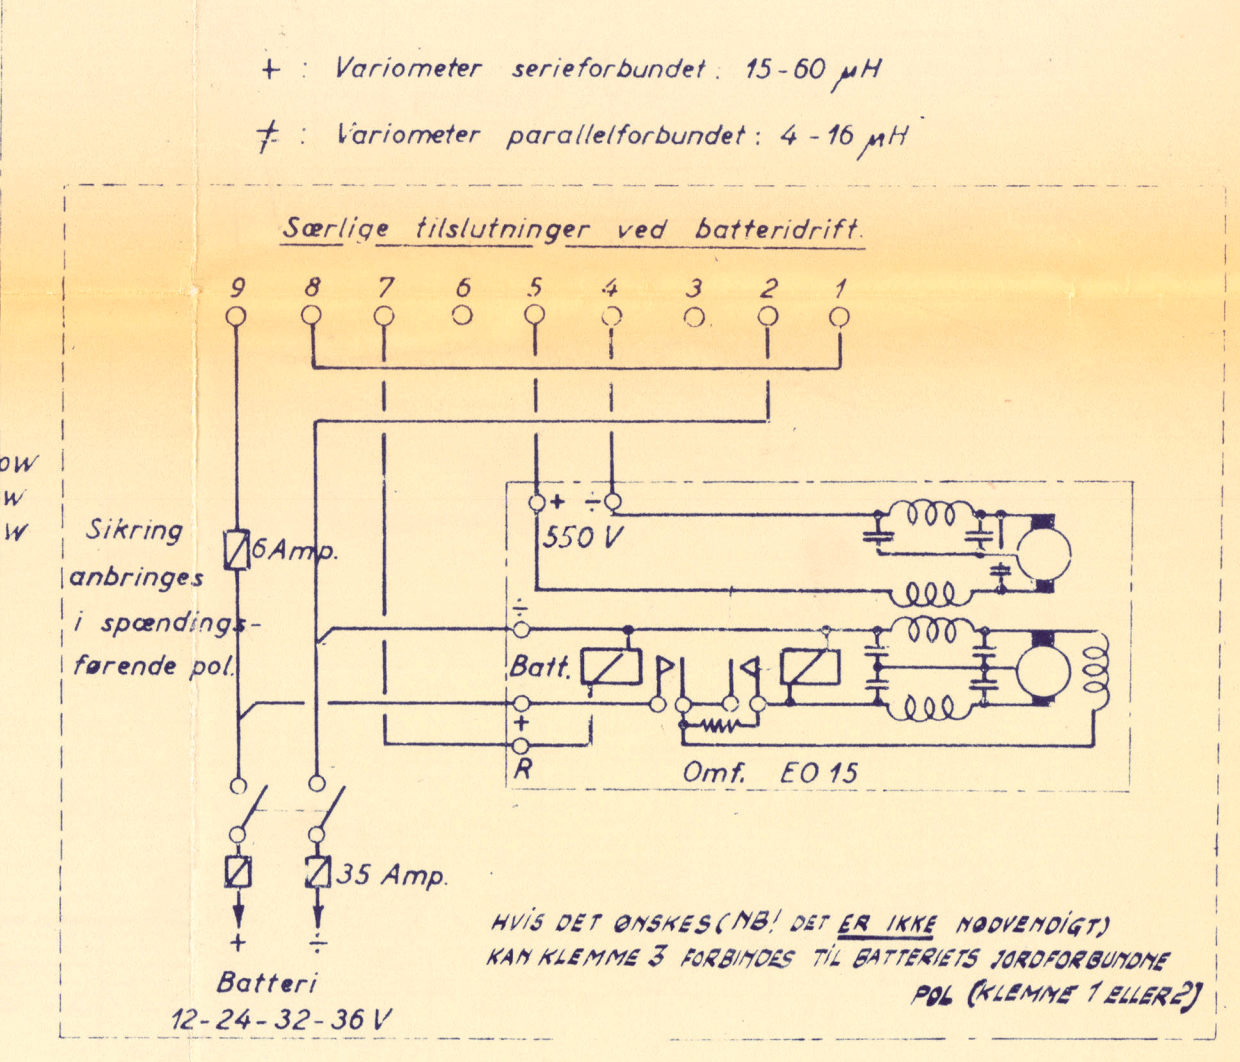 + : Variometer serieforbundet: 15-60 μH
≠ : Variometer parallelforbundet: 4-16 μH
Særlige tilslutninger ved batteridrift.
9 8 7 6 5 4 3 2 1
W
W
+ ÷
550 V
Sikring
6 Amp.
anbringes
i spændings-
førende pol.
÷
Batt.
+
R
Omf. EO 15
35 Amp.
+ ÷
Batteri
12-24-32-36 V
HVIS DET ØNSKES (NB! DET ER IKKE NØDVENDIGT)
KAN KLEMME 3 FORBINDES TIL BATTERIETS JORDFORBUNDNE
POL (KLEMME 1 ELLER 2)